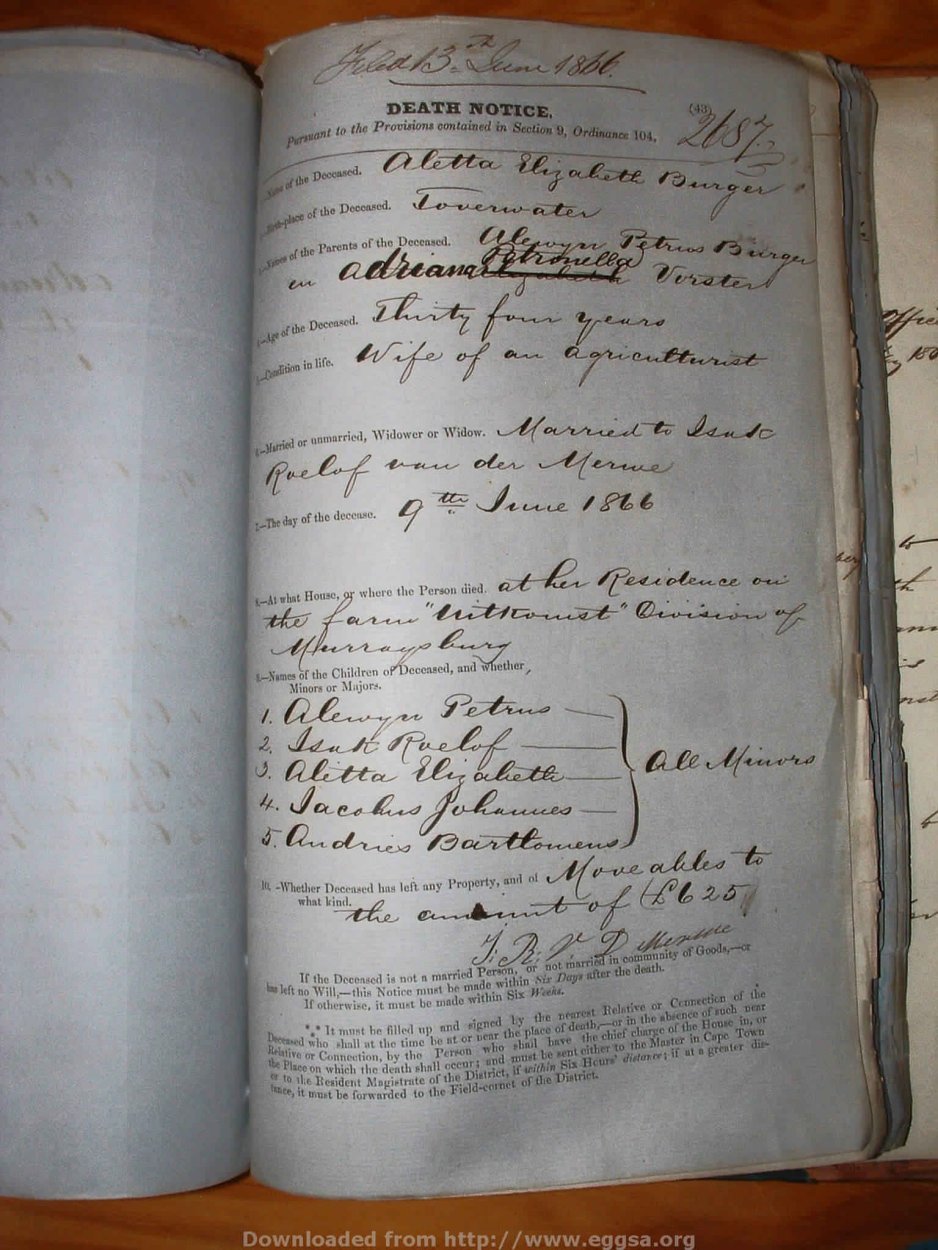 Filed 13th June 1866.
(43)
DEATH NOTICE,
2687.
Pursuant to the Provisions contained in Section 9, Ordinance 104,
Name of the Deceased. Aletta Elizabeth Burger
Birth-place of the Deceased. Toverwater
3.—Names of the Parents of the Deceased. Alewyn Petrus Burger
en Adriana Petronella Vorster
4.—Age of the Deceased. Thirty four years
5.—Condition in life. Wife of an agriculturist
6.—Married or unmarried, Widower or Widow. Married to Isak
Roelof van der Merwe
7.—The day of the decease. 9th June 1866
8.—At what House, or where the Person died. at her Residence on
the farm "Uitkomst" Division of
Murraysburg
9.—Names of the Children of Deceased, and whether,
Minors or Majors.
1. Alewyn Petrus —
2. Isak Roelof —
3. Alitta Elizabeth —
4. Jacobus Johannes —
5. Andries Bartlomeus
All Minors
10.-Whether Deceased has left any Property, and of Moveables to
what kind. the amount of (£625)
J. R. V. D Merwe
If the Deceased is not a married Person, or not married in community of Goods,—or
has left no Will,—this Notice must be made within Six Days after the death.
If otherwise, it must be made within Six Weeks.
*** It must be filled up and signed by the nearest Relative or Connection of the
Deceased who shall at the time be at or near the place of death,—or in the absence of such near
Relative or Connection, by the Person who shall have the chief charge of the House in, or
the Place on which the death shall occur; and must be sent either to the Master in Cape Town
or to the Resident Magistrate of the District, if within Six Hours' distance; if at a greater dis-
tance, it must be forwarded to the Field-cornet of the District.
Downloaded from http://www.eggsa.org